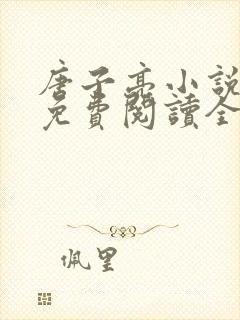 唐子亭小說
免費閱讀全
佩里